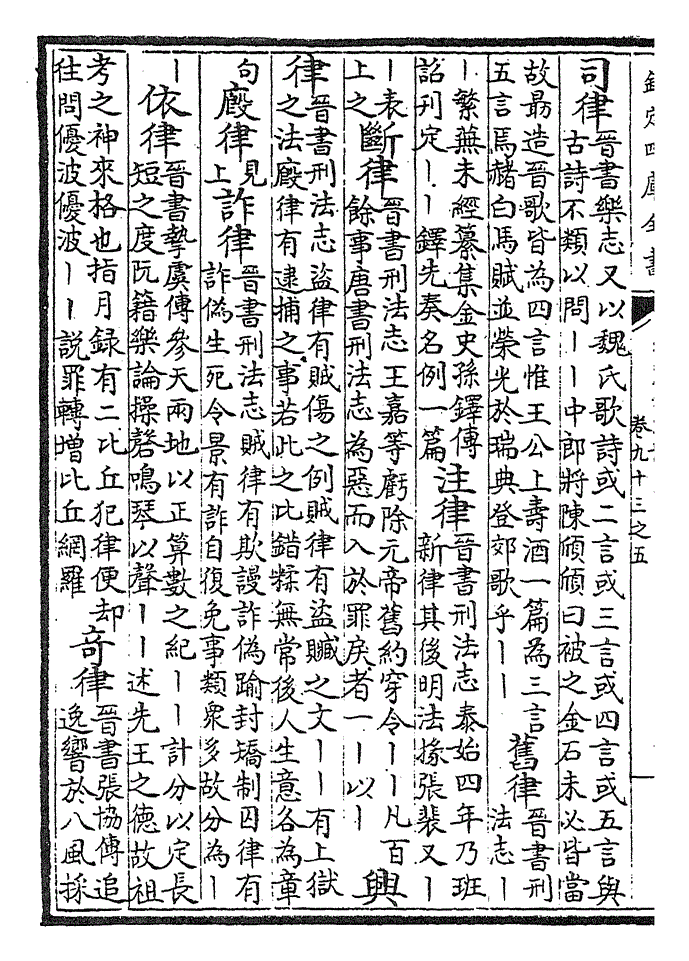 欽定四庫全書
卷九十三之五
司律晉書樂志又以魏氏歌詩或二言或三言或四言或五言與
古詩不類以問丨丨中郎將陳頎頎曰被之金石未必皆當
故朂造晉歌皆為四言惟王公上壽酒一篇為三言
五言馬赭白馬賦並榮光於瑞典登郊歌乎丨丨
舊律晉書刑
法志丨
丨繁蕪未經纂集金史孫鐸傳
詔刊定丨丨鐸先奏名例一篇
注律晉書刑法志泰始四年乃班
新律其後明法掾張裴又丨
丨表
上之
斷律晉書刑法志王嘉等虧除元帝舊約穿令丨丨凡百
餘事唐書刑法志為惡而入於罪戾者一丨以丨
興
律晉書刑法志盜律有賊傷之例賊律有盜贓之文丨丨有上獄
之法廄律有逮捕之事若此之比錯糅無常後人生意各為章
句
廄律見
上
詐律晉書刑法志賊律有欺謾詐偽踰封矯制囚律有
詐偽生死令景有詐自復免事類衆多故分為丨
丨
依律晉書摯虞傳參天兩地以正算數之紀丨丨計分以定長
短之度阮籍樂論操磬鳴琴以聲丨丨述先王之德故祖
考之神來格也指月録有二比丘犯律便却
往問優波優波丨丨說罪轉增比丘網羅
奇律晉書張協傳追
逸響於八風採